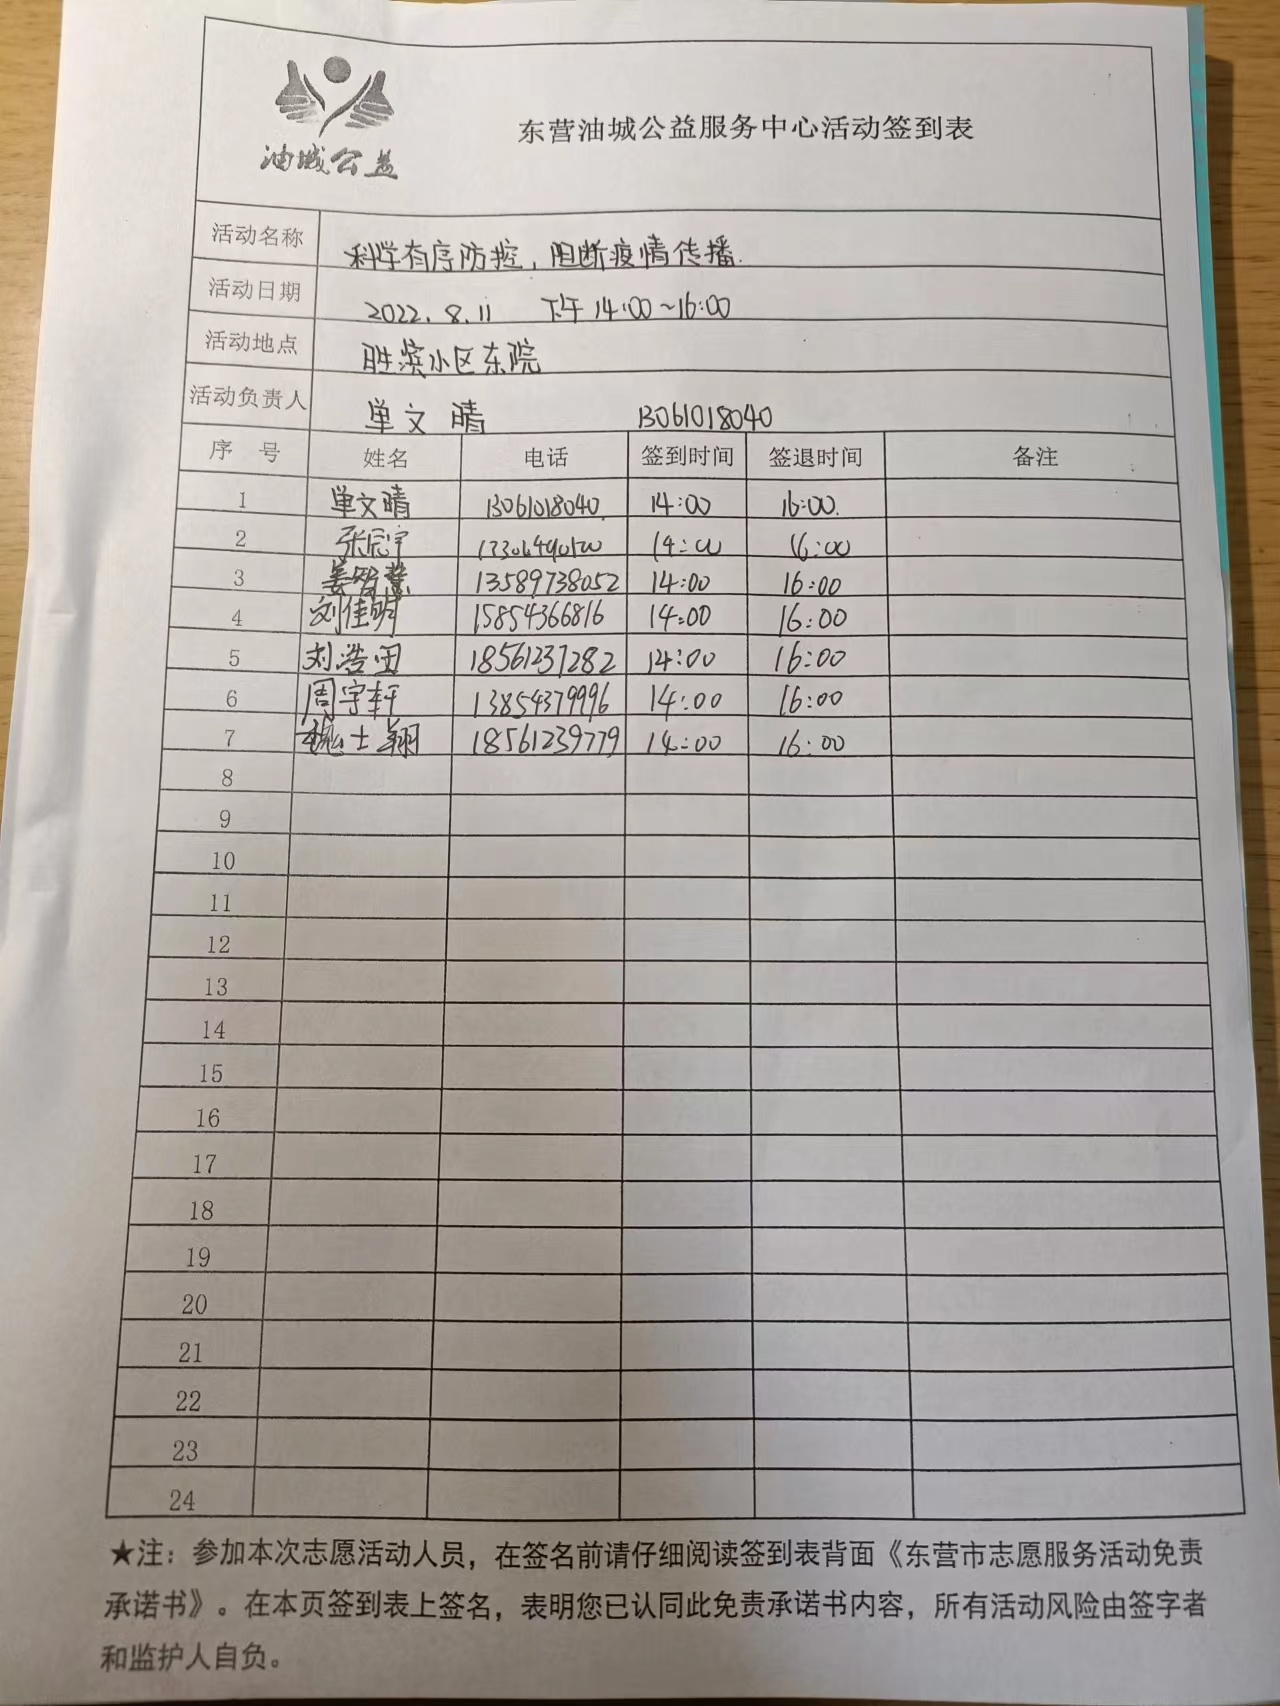 油城公益
东营油城公益服务中心活动签到表
活动名称 科学有序防控，阻断疫情传播.
活动日期 2022.8.11 下午14:00~16:00
活动地点 胜滨小区东院
活动负责人 单文晴 13061018040
序号 姓名 电话 签到时间 签退时间 备注
1 单文晴 13061018040 14:00 16:00.
2 张宸宇 14:00 16:00
3 姜智慧 13589738052 14:00 16:00
4 刘佳明 15854366816 14:00 16:00
5 刘浩田 18561237282 14:00 16:00
6 周宇轩 13854379996 14:00 16:00
7 魏士翔 18561239779 14:00 16:00
8
9
10
11
12
13
14
15
16
17
18
19
20
21
22
23
24
★注：参加本次志愿活动人员，在签名前请仔细阅读签到表背面《东营市志愿服务活动免责
承诺书》。在本页签到表上签名，表明您已认同此免责承诺书内容，所有活动风险由签字者
和监护人自负。